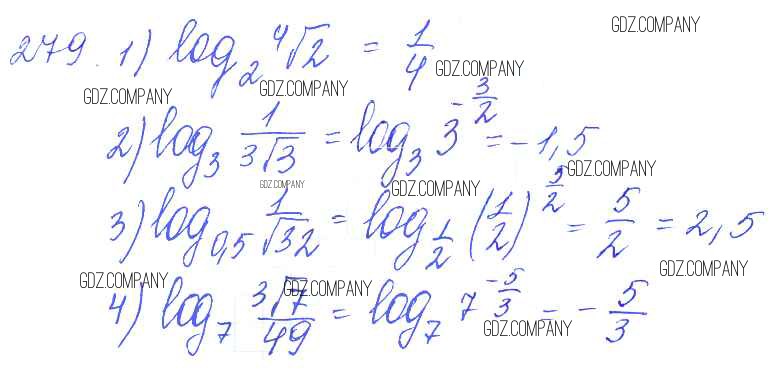 GDZ.COMPANY
279. 1) log₂ ⁴√2 = 1/4
GDZ.COMPANY GDZ.COMPANY GDZ.COMPANY
2) log₃ 1/(3√3) = log₃ 3^(-3/2) = -1,5
GDZ.COMPANY GDZ.COMPANY GDZ.COMPANY
3) log₀,₅ 1/√32 = log_(1/2) (1/2)^(5/2) = 5/2 = 2,5
GDZ.COMPANY GDZ.COMPANY GDZ.COMPANY
4) log₇ ³√7/49 = log₇ 7^(-5/3) = -5/3
GDZ.COMPANY